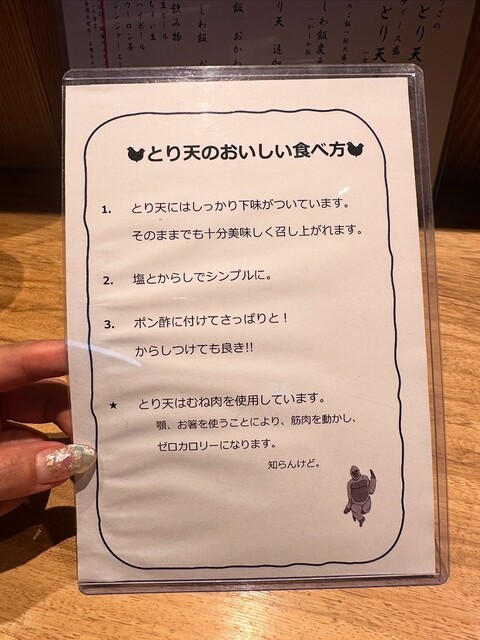 とり天のおいしい食べ方
1. とり天にはしっかり下味がついています。
そのままでも十分美味しく召し上がれます。
2. 塩とからしでシンプルに。
3. ポン酢に付けてさっぱりと！
からしつけても良き!!
★ とり天はむね肉を使用しています。
顎、お箸を使うことにより、筋肉を動かし、
ゼロカロリーになります。
知らんけど。
とり天
しわ飯
飲み物
生ビール
ハイボール
ウーロン茶